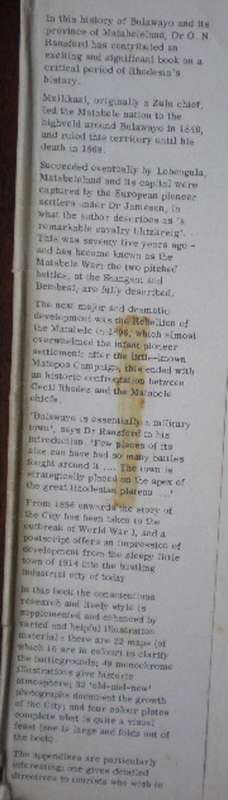 In this history of Bulawayo and its
province of Matabeleland, Dr O. N.
Ransford has contributed an
exciting and significant book on a
critical period of Rhodesia's
history.
Mzilikazi, originally a Zulu chief,
led the Matabele nation to the
highveld around Bulawayo in 1840,
and ruled this territory until his
death in 1868.
Succeeded eventually by Lobengula,
Matabeleland and its capital were
captured by the European pioneer
settlers under Dr Jameson, in
what the author describes as 'a
remarkable cavalry blitzkreig'.
This was seventy five years ago -
and has become known as the
Matabele War: the two pitched
battles, at the Shangani and
Bembesi, are fully described.
The next major and dramatic
development was the Rebellion of
the Matabele in 1896, which almost
overwhelmed the infant pioneer
settlement; after the little-known
Matopos Campaign, this ended with
an historic confrontation between
Cecil Rhodes and the Matabele
chiefs.
'Bulawayo is essentially a military
town', says Dr Ransford in his
introduction. 'Few places of its
size can have had so many battles
fought around it .... The town is
strategically placed on the apex of
the great Rhodesian plateau ....'
From 1896 onwards the story of
the City has been taken to the
outbreak of World War I, and a
postscript offers an impression of
development from the sleepy little
town of 1914 into the bustling
industrial city of today
In this book the conscientious
research and lively style is
supplemented and enhanced by
varied and helpful illustration
material: there are 22 maps (of
which 16 are in colour) to clarify
the battlegrounds; 49 monochrome
illustrations give historic
atmosphere; 32 'old-and-new'
photographs document the growth
of the City; and four colour plates
complete what is quite a visual
feast (one is large and folds out of
the book)
The appendices are particularly
interesting: one gives detailed
directives to tourists who wish to